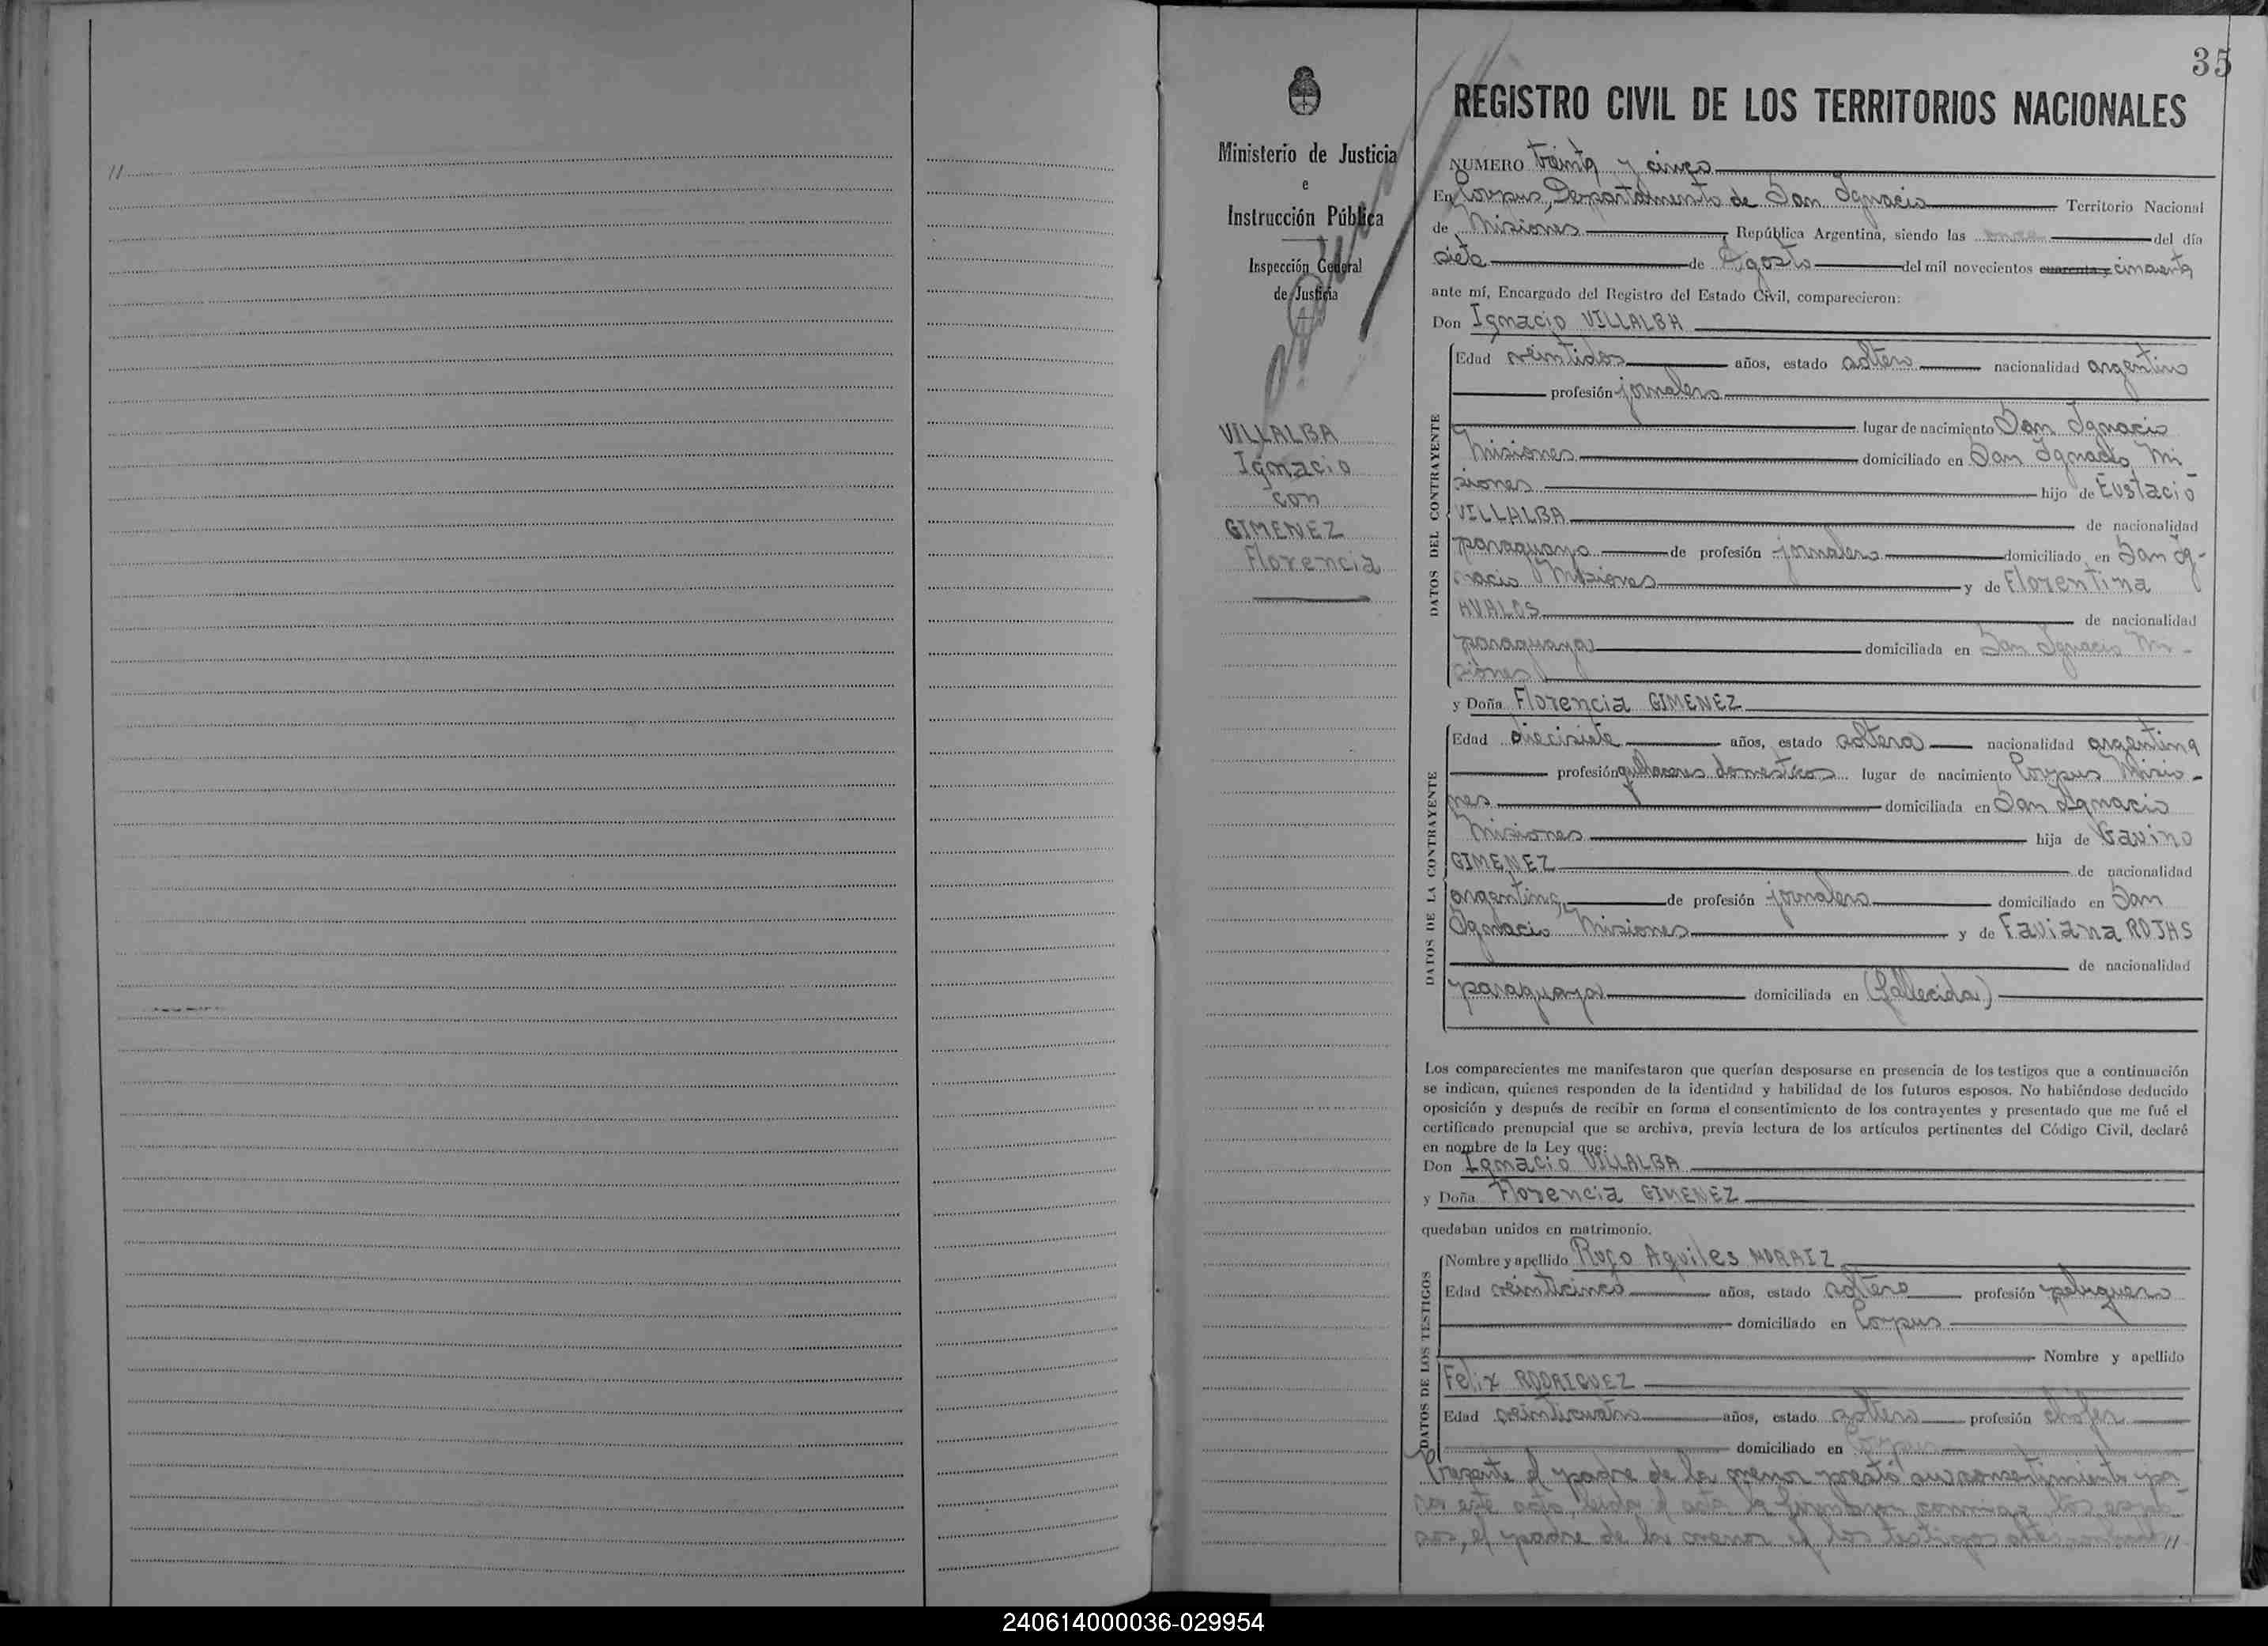 //
35
Ministerio de Justicia
e
Instrucción Pública
Inspección General
de Justicia
VILLALBA
Ignacio
con
GIMENEZ
Florencia
REGISTRO CIVIL DE LOS TERRITORIOS NACIONALES
NUMERO treinta y cinco
En Corpus, Departamento de San Ignacio Territorio Nacional
de Misiones, República Argentina, siendo las once del día
siete de Agosto del mil novecientos cuarenta y cincuenta
ante mí, Encargado del Registro del Estado Civil, comparecieron:
Don Ignacio VILLALBA
DATOS DEL CONTRAYENTE
Edad veintidos años, estado soltero nacionalidad argentino
profesión jornalero
lugar de nacimiento San Ignacio
Misiones domiciliado en San Ignacio, Mi
siones hijo de Eustacio
VILLALBA de nacionalidad
paraguayo de profesión jornalero domiciliado en San Ig-
nacio Misiones y de Florentina
AVALOS de nacionalidad
paraguaya domiciliada en San Ignacio Mi-
siones
y Doña Florencia GIMENEZ
DATOS DE LA CONTRAYENTE
Edad diecisiete años, estado soltera nacionalidad argentina
profesión quehaceres domesticos lugar de nacimiento Corpus Misio-
nes domiciliada en San Ignacio
Misiones hija de Gavino
GIMENEZ de nacionalidad
argentina, de profesión jornalero domiciliado en San
Ignacio Misiones y de Faviana ROJAS
de nacionalidad
paraguaya domiciliada en (fallecida)
Los comparecientes me manifestaron que querían desposarse en presencia de los testigos que a continuación
se indican, quienes responden de la identidad y habilidad de los futuros esposos. No habiéndose deducido
oposición y después de recibir en forma el consentimiento de los contrayentes y presentado que me fué el
certificado prenupcial que se archiva, previa lectura de los artículos pertinentes del Código Civil, declaré
en nombre de la Ley que:
Don Ignacio VILLALBA
y Doña Florencia GIMENEZ
quedaban unidos en matrimonio.
DATOS DE LOS TESTIGOS
Nombre y apellido Aquiles MORAIZ
Edad veinticinco años, estado soltero profesión peluquero
domiciliado en Corpus
Nombre y apellido
Felix RODRIGUEZ
Edad veinticuatro años, estado soltero profesión chofer
domiciliado en Corpus
Presente el padre de la menor prestó su consentimiento pa-
ra este acto, leida el acta la firmaron conmigo los espo-
sos, el padre de la menor y los testigos //
240614000036-029954